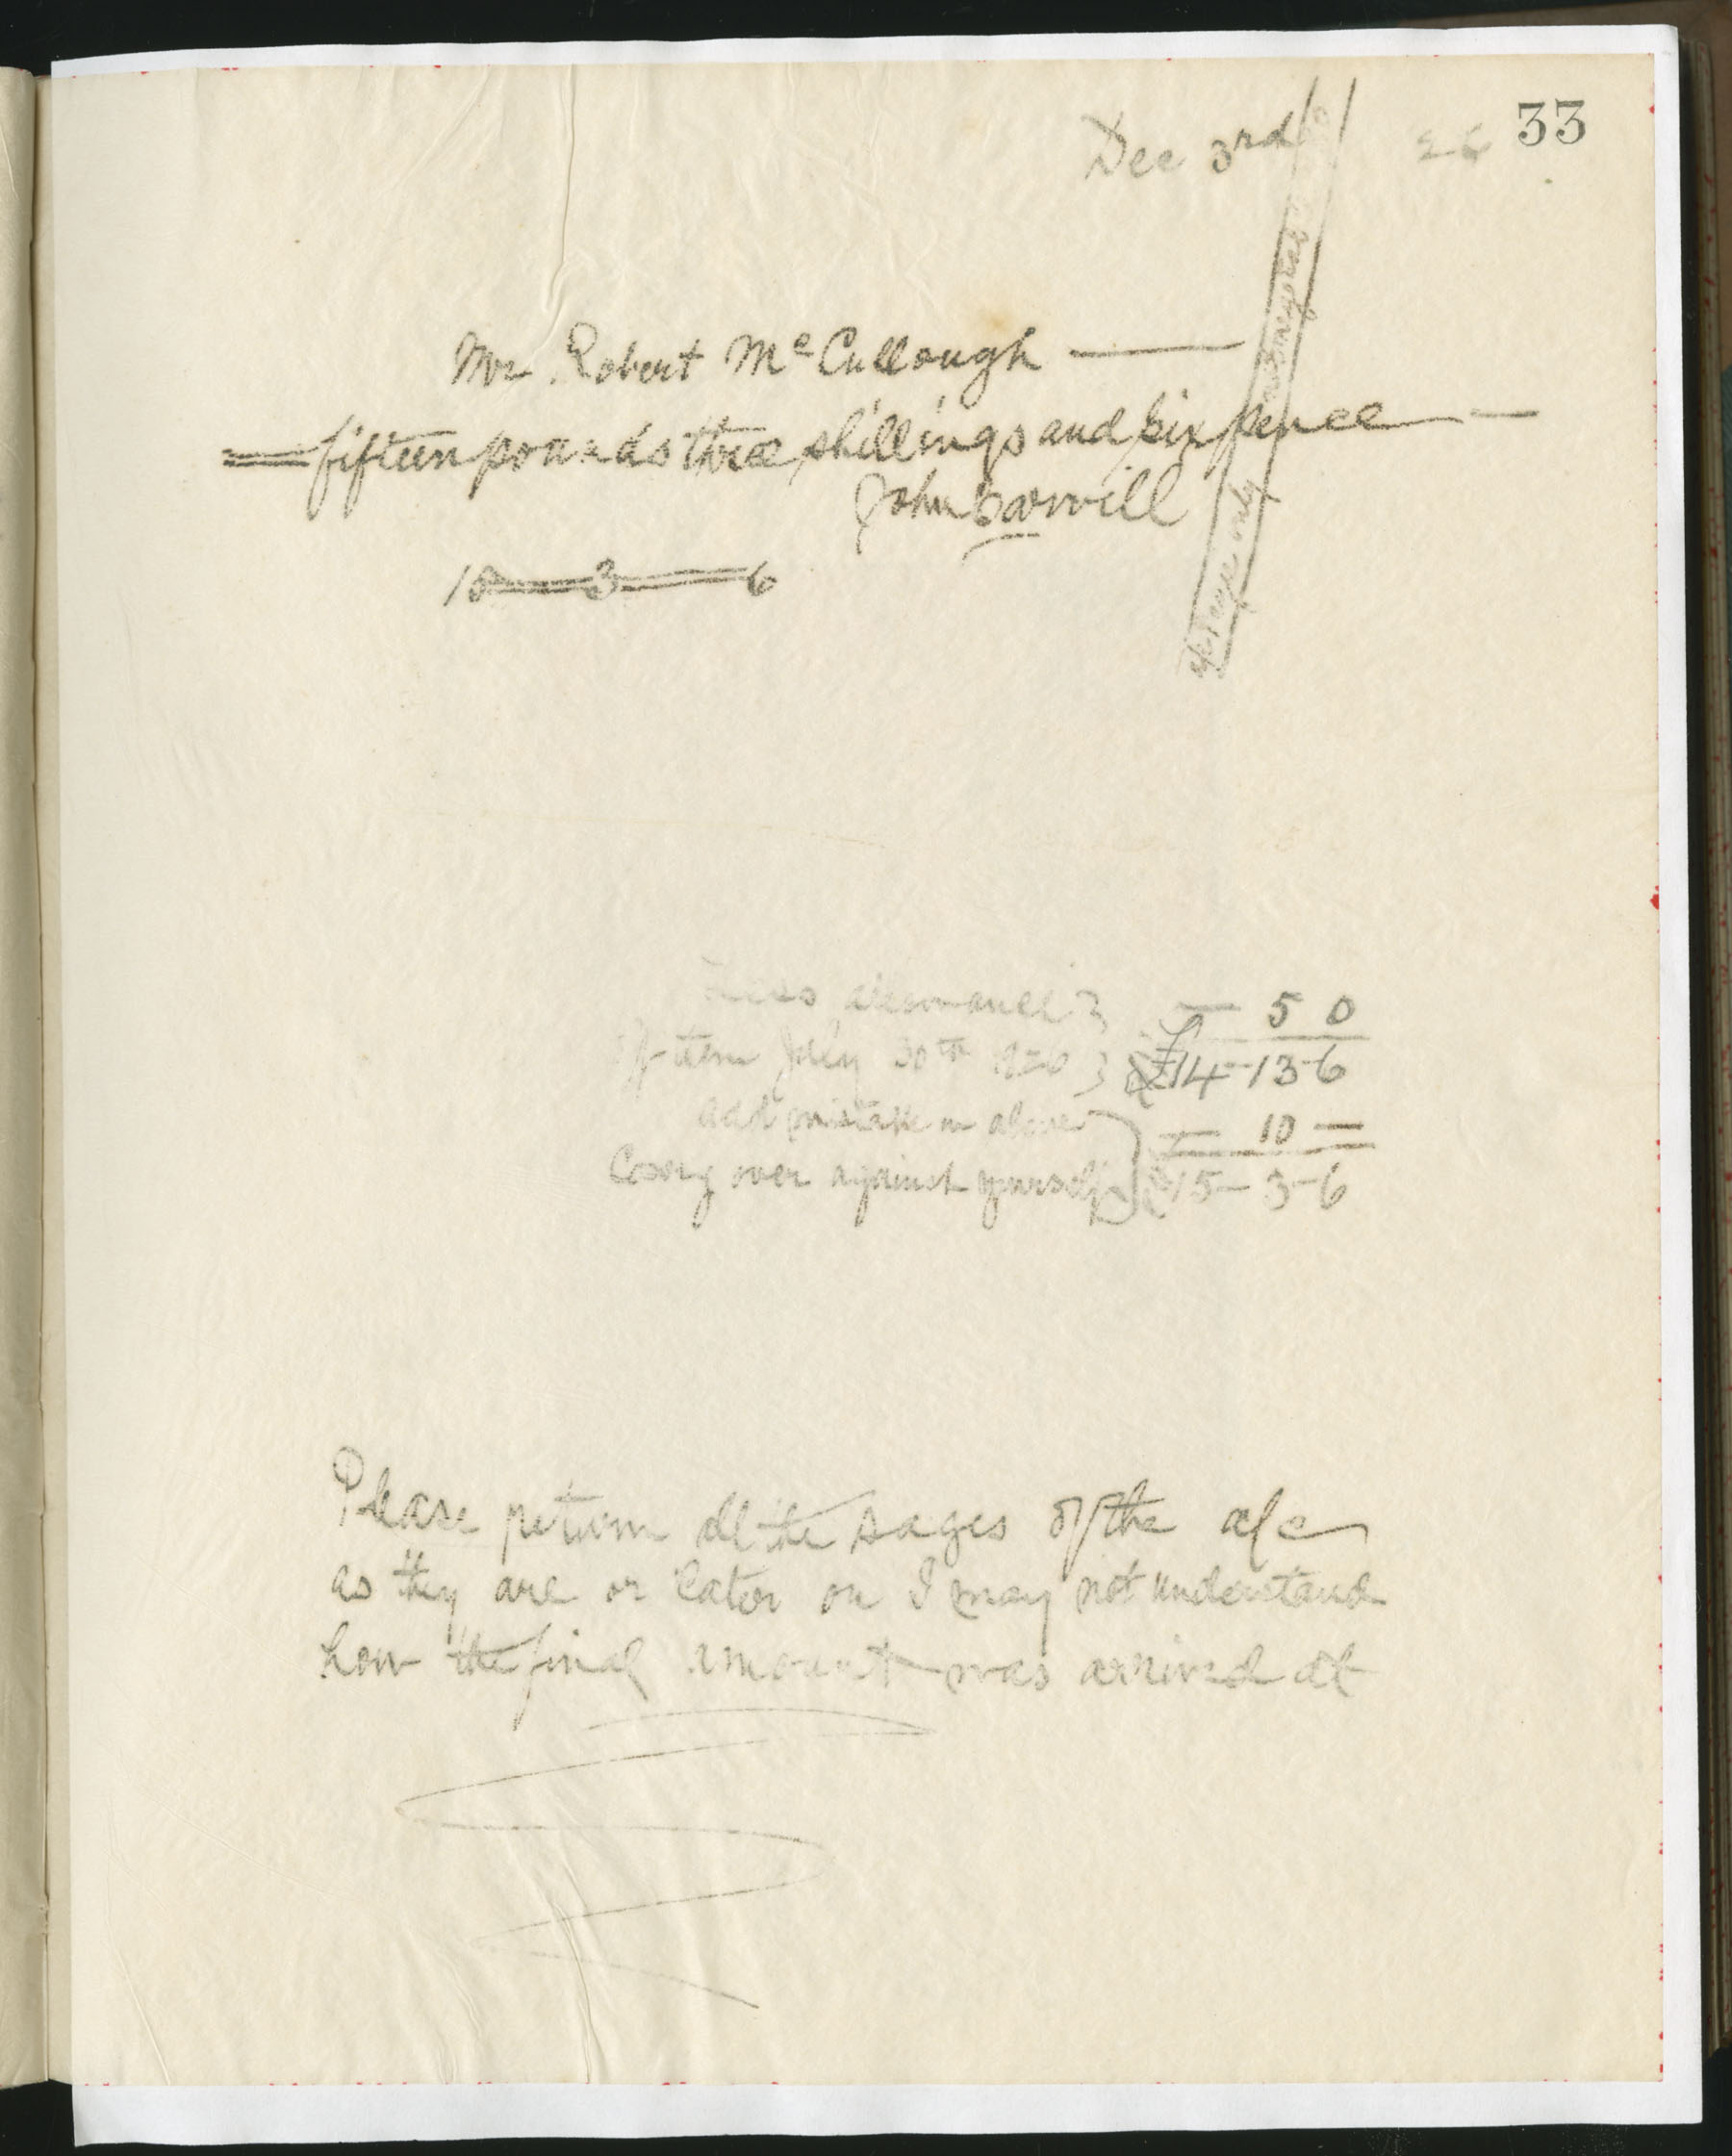 33
Dec 3rd 26
Mr Robert McCullough
fifteen pounds three shillings and six pence
John
15 3 6
a/c Payee only
Less allowance — 5 0
item July 30th 1926 £14-13-6
add mistake in above — 10 —
over against yourself £15-3-6
Please return all the pages of the a/c
as they are or later on I may not understand
how the final amount was arrived at